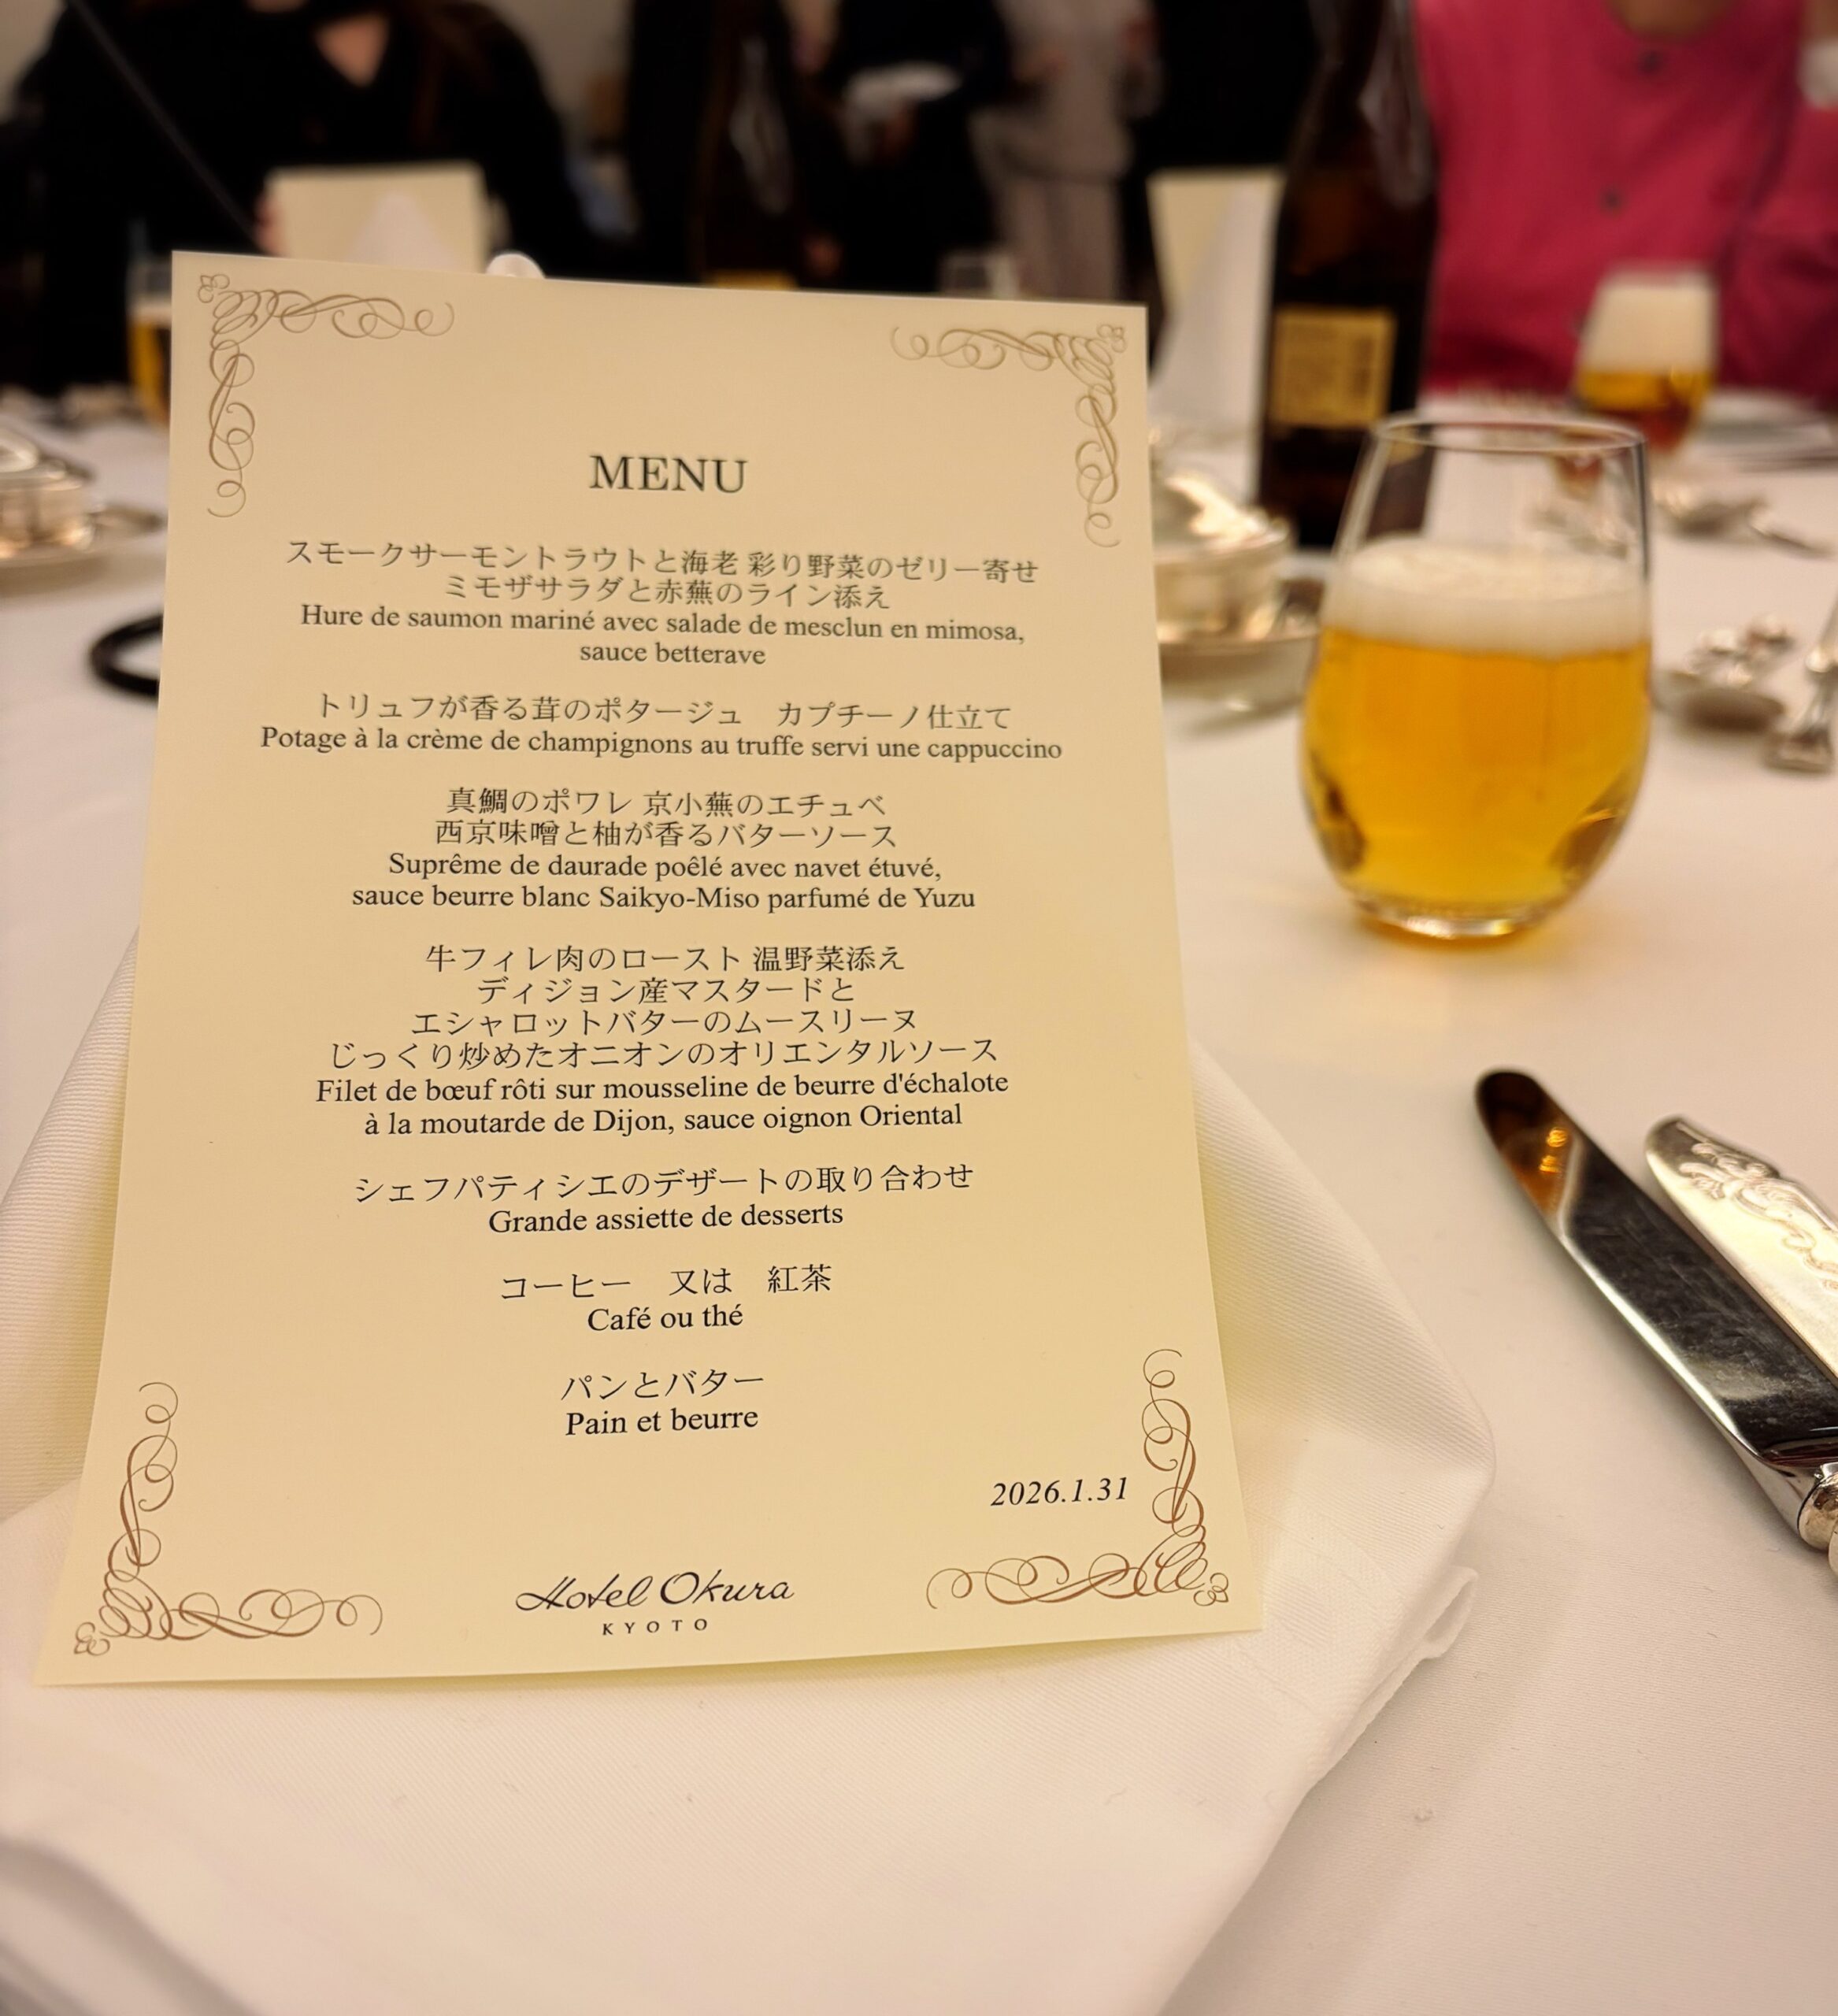 MENU
スモークサーモントラウトと海老 彩り野菜のゼリー寄せ
ミモザサラダと赤蕪のライン添え
Hure de saumon mariné avec salade de mesclun en mimosa,
sauce betterave
トリュフが香る茸のポタージュ　カプチーノ仕立て
Potage à la crème de champignons au truffe servi une cappuccino
真鯛のポワレ 京小蕪のエチュベ
西京味噌と柚が香るバターソース
Suprême de daurade poêlé avec navet étuvé,
sauce beurre blanc Saikyo-Miso parfumé de Yuzu
牛フィレ肉のロースト 温野菜添え
ディジョン産マスタードと
エシャロットバターのムースリーヌ
じっくり炒めたオニオンのオリエンタルソース
Filet de bœuf rôti sur mousseline de beurre d'échalote
à la moutarde de Dijon, sauce oignon Oriental
シェフパティシエのデザートの取り合わせ
Grande assiette de desserts
コーヒー　又は　紅茶
Café ou thé
パンとバター
Pain et beurre
2026.1.31
Hotel Okura
KYOTO